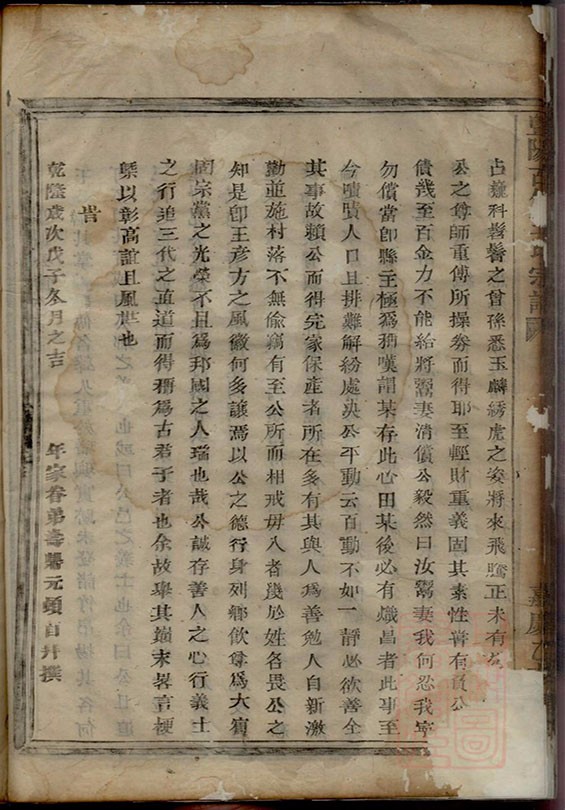 占耀科髫髻之曾孫悉玉麟綉虎之姿將來飛騰正未有
公之尊師重傅所操劵而得耶至輕財重義固其素性嘗有負公
債義至百金力不能給將鬻妻清債公毅然曰汝鬻妻我何忍我寜
勿償當卽縣主極爲稱嘆謂某存此心田某後必有熾昌者此事至
今嘖嘖人口且排難解紛處决公平動云百動不如一靜必欲善全
其事故賴公而得完家保產者所在多有其與人爲善勉人自新激
勸並施村落不無偷竊有至公所而相戒毋入者幾於姓各畏公之
知是卽王彥方之風徽何多讓焉以公之德行身列鄉飮尊爲大賓
固宗黨之光榮不且爲邦國之人瑞也哉公誠存善人之心行義士
之行追三代之直道而得稱爲古君子者也余故舉其巔末畧言梗
槩以彰高誼且風世也
旹
乾隆歲次戊子冬月之吉
年家眷弟 元頭百拜撰
宗譜
嘉慶